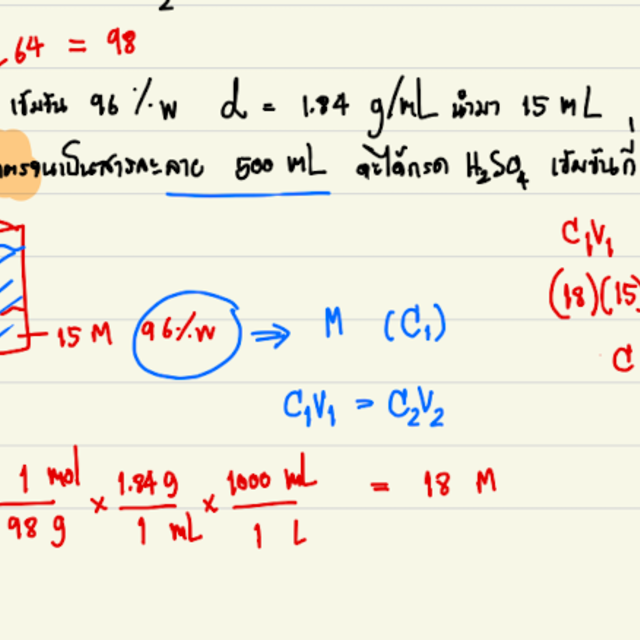 64 = 98
เข้มข้น 96 %w d = 1.84 g/mL นำมา 15 mL
จนเป็นสารละลาย 500 mL จะได้กรด H₂SO₄ เข้มข้นกี่
C₁V₁
(18)(15)
C
15 M 96%w ⇒ M (C₁)
C₁V₁ = C₂V₂
1 mol / 98 g × 1.84 g / 1 mL × 1000 mL / 1 L = 18 M